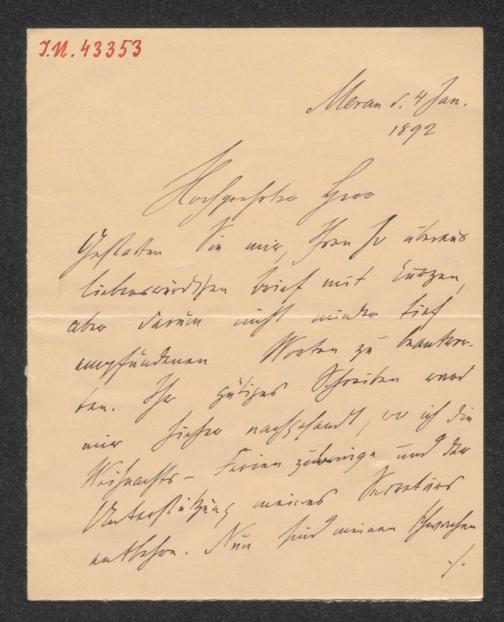 J.N. 43353
Meran d. 4 Jan.
1892
Hochgeehrter Herr
Gestatten Sie mir, Ihren so überaus
liebenswürdigen Brief mit kurzen,
aber darum nicht minder tief
empfundenen Worten zu beantwor-
ten. Ihr gütiges Schreiben ward
mir hieher nachgesandt, wo ich die
Weihnachts-Ferien zubringe und der
Unterstützung meines Secretärs
entbehre. Nun sind meinen schwachen
./.